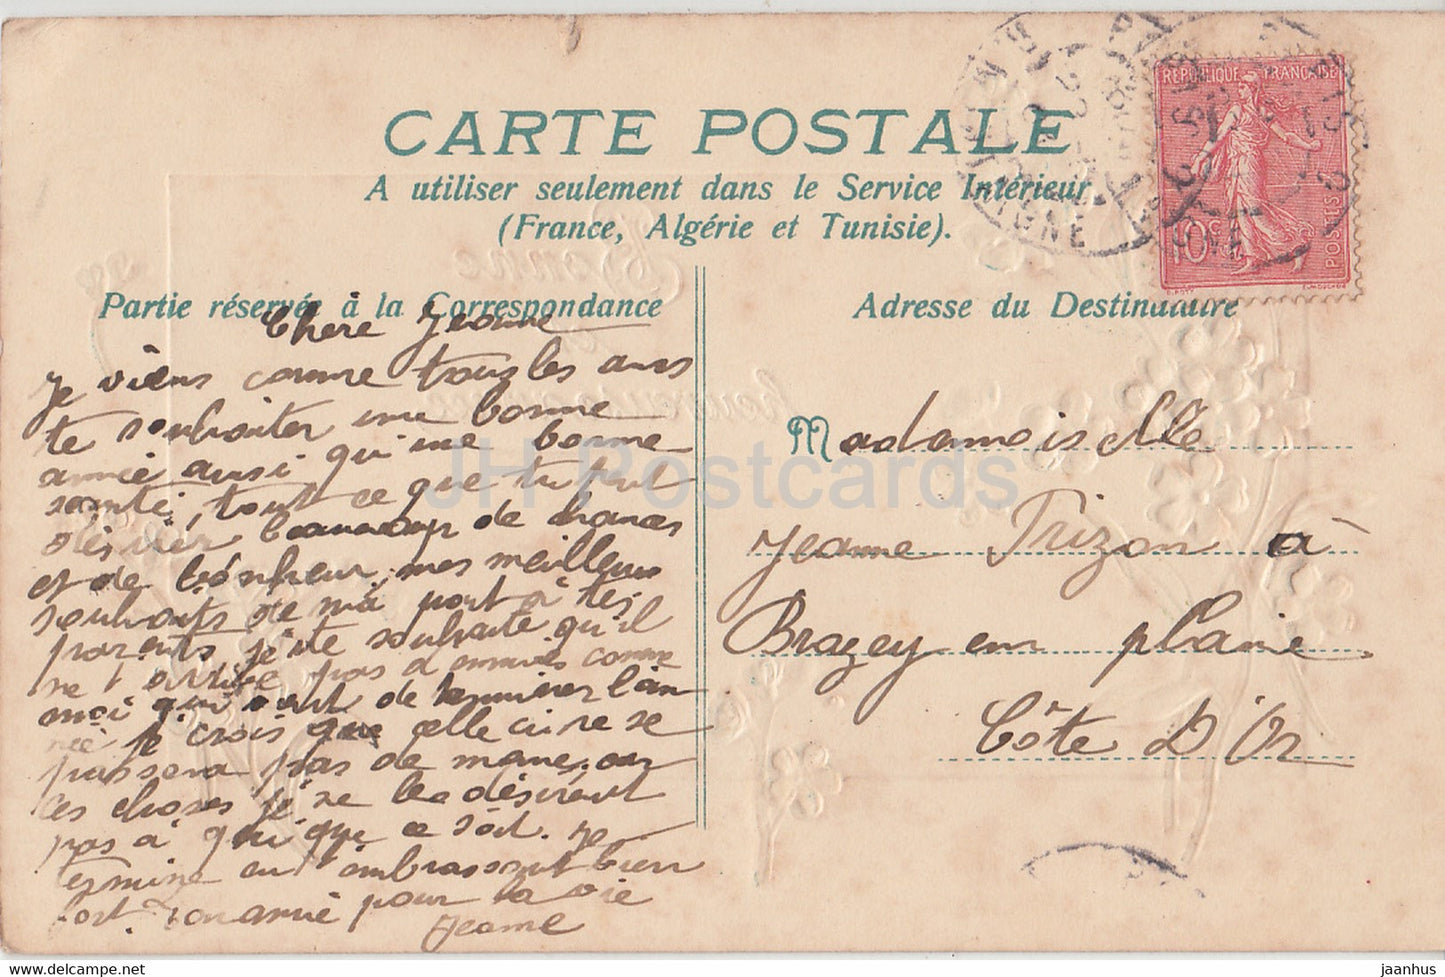 CARTE POSTALE
A utiliser seulement dans le Service Intérieur
(France, Algérie et Tunisie).
Partie réservée à la Correspondance
Adresse du Destinataire
REPUBLIQUE FRANÇAISE
10c
POSTES
Chere Jeanne
je viens comme tous les ans
te souhaiter une bonne
année ausi qu'une bonne
santé, tout ce que tu peut
désirer beaucoup de chances
et de bonheur, mes meilleurs
souhaits de ma part à tes
parents je te souhaite qu'il
ne t'arrive pas d'ennuis comme
moi qui vient de terminer l'an
née je crois que celle ci ne se
passera pas de meme, car
ces choses je ne les désirent
pas à qui que ce soit. Je
termine en t'embrassant bien
fort. Ton amie pour la vie
Jeanne
Mademoiselle
Jeanne Trizon à
Brazey en plaine
Côte D'Or
Bonne
heureuse
JH Postcards
jaanhus
delcampe.net